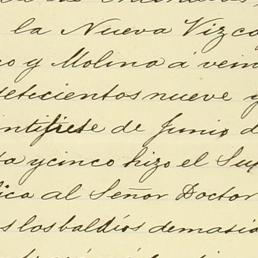 la Nueva Vizca
co y Molina á vein
setecientos nueve y
intisiete de Junio d
ta y cinco hizo el Sup
lica al Señor Doctor
s los baldíos demasia